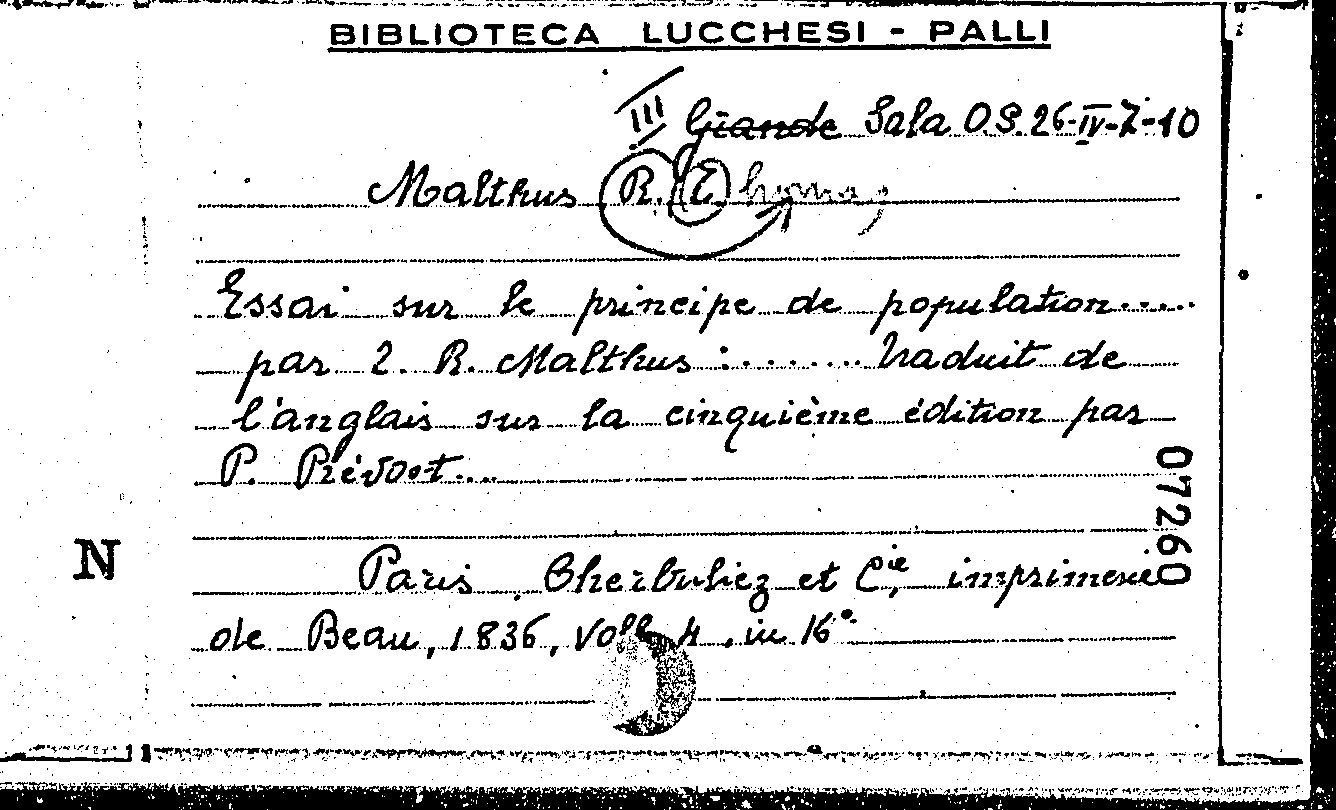 BIBLIOTECA LUCCHESI - PALLI
III Grande Sala O.S. 26-IV-7-10
Malthus R. T. homas
Essai sur le principe de population.....
par 2. R. Malthus :........ traduit de
l'anglais sur la cinquième édition par
P. Prévost...
07260
N
Paris, Cherbuliez et Cie, imprimerie
de Beau, 1836, Voll. 4, in 16°